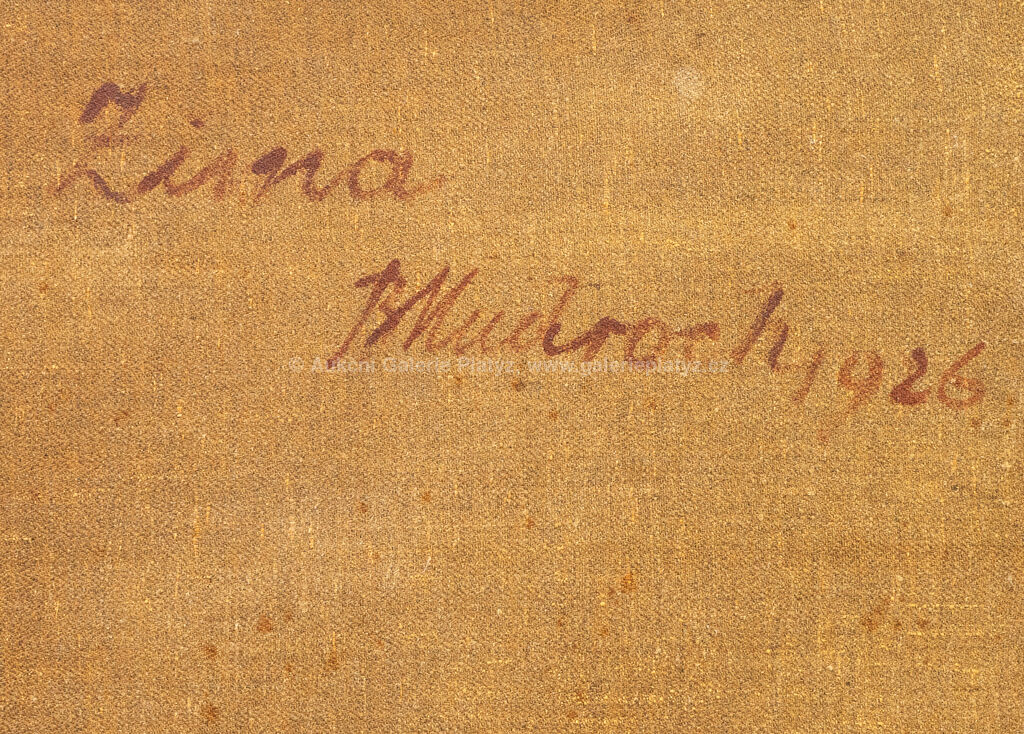 Zima
B Mudroch 1926
© Aukční Galerie Platýz, www.galerieplatyz.cz